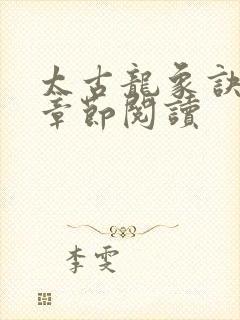 太古龍象訣
章節閱讀
李雯